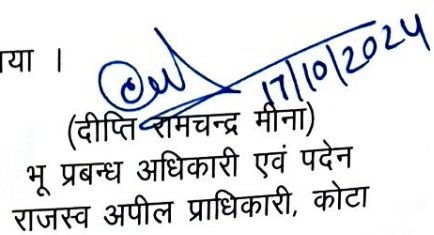 गया ।
17/10/2024
(दीप्ति रामचन्द्र मीना)
भू प्रबन्ध अधिकारी एवं पदेन
राजस्व अपील प्राधिकारी, कोटा